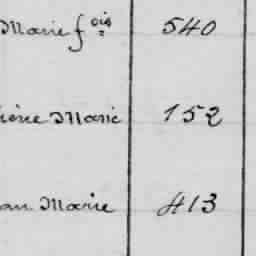 Marie fois 540
Marie 152
Marie 413